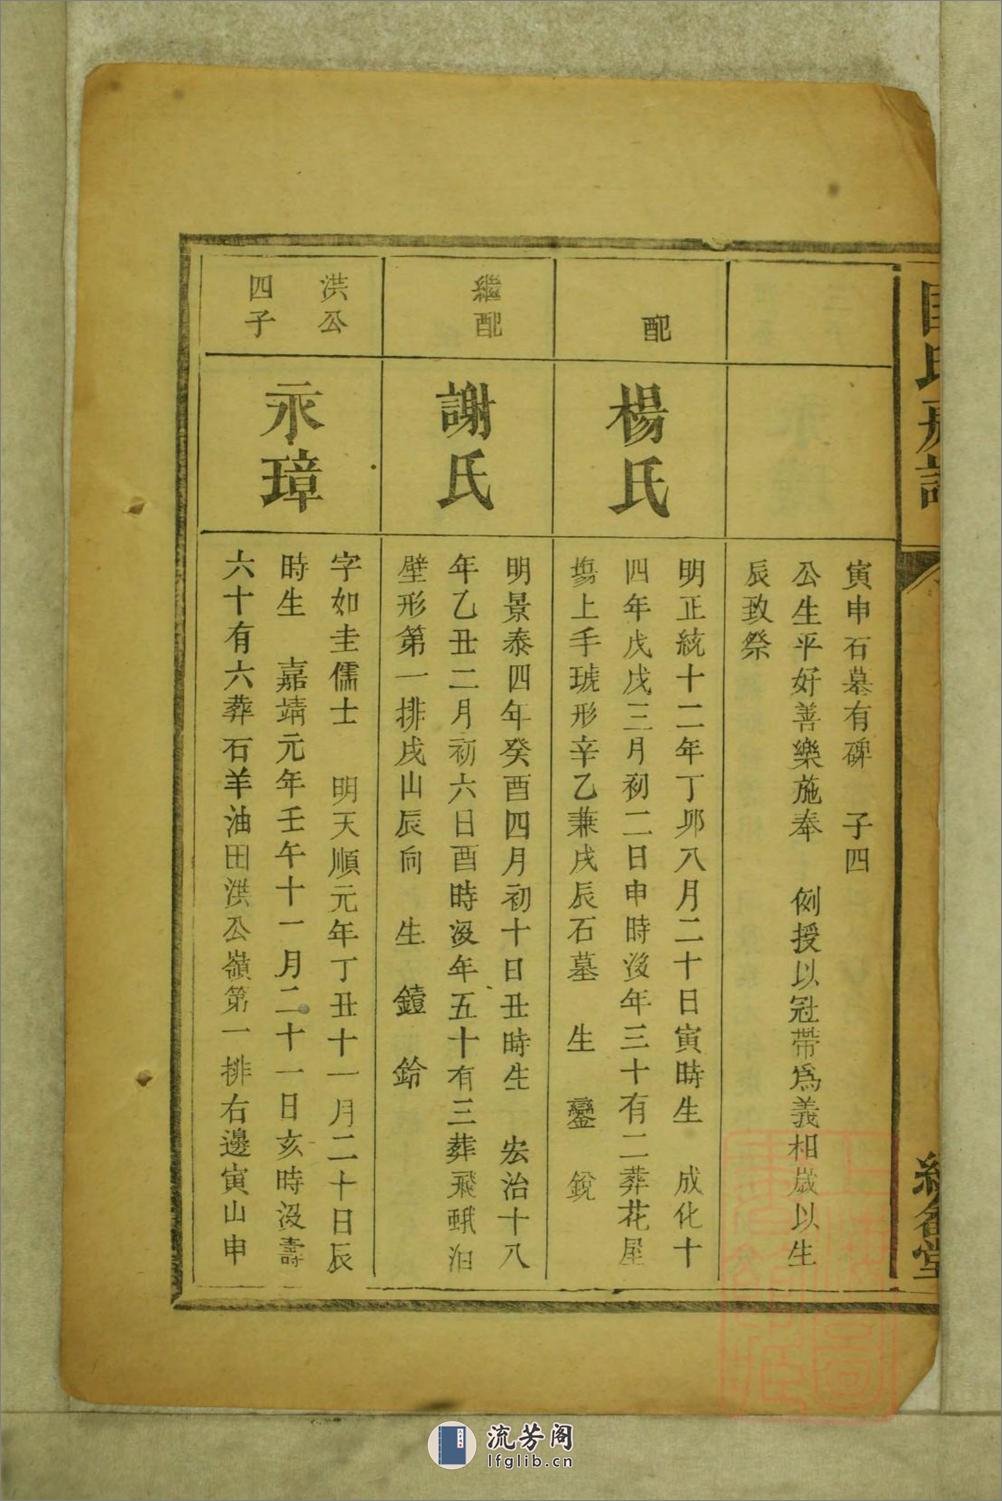 寅申石墓有碑　子四
公生平好善樂施奉　例授以冠帶爲義相歲以生
辰致祭
配
楊氏
明正統十二年丁卯八月二十日寅時生　成化十
四年戊戌三月初二日申時沒年三十有二葬花屋
塲上手琥形辛乙兼戌辰石墓　生　鑾　銳
繼配
謝氏
明景泰四年癸酉四月初十日丑時生　宏治十八
年乙丑二月初六日酉時沒年五十有三葬飛蛾泊
壁形第一排戌山辰向　生　鐀　鈴
洪公
四子
永璋
字如圭儒士　明天順元年丁丑十一月二十日辰
時生　嘉靖元年壬午十一月二十一日亥時沒壽
六十有六葬石羊油田洪公嶺第一排右邊寅山申
流芳阁
lfglib.cn